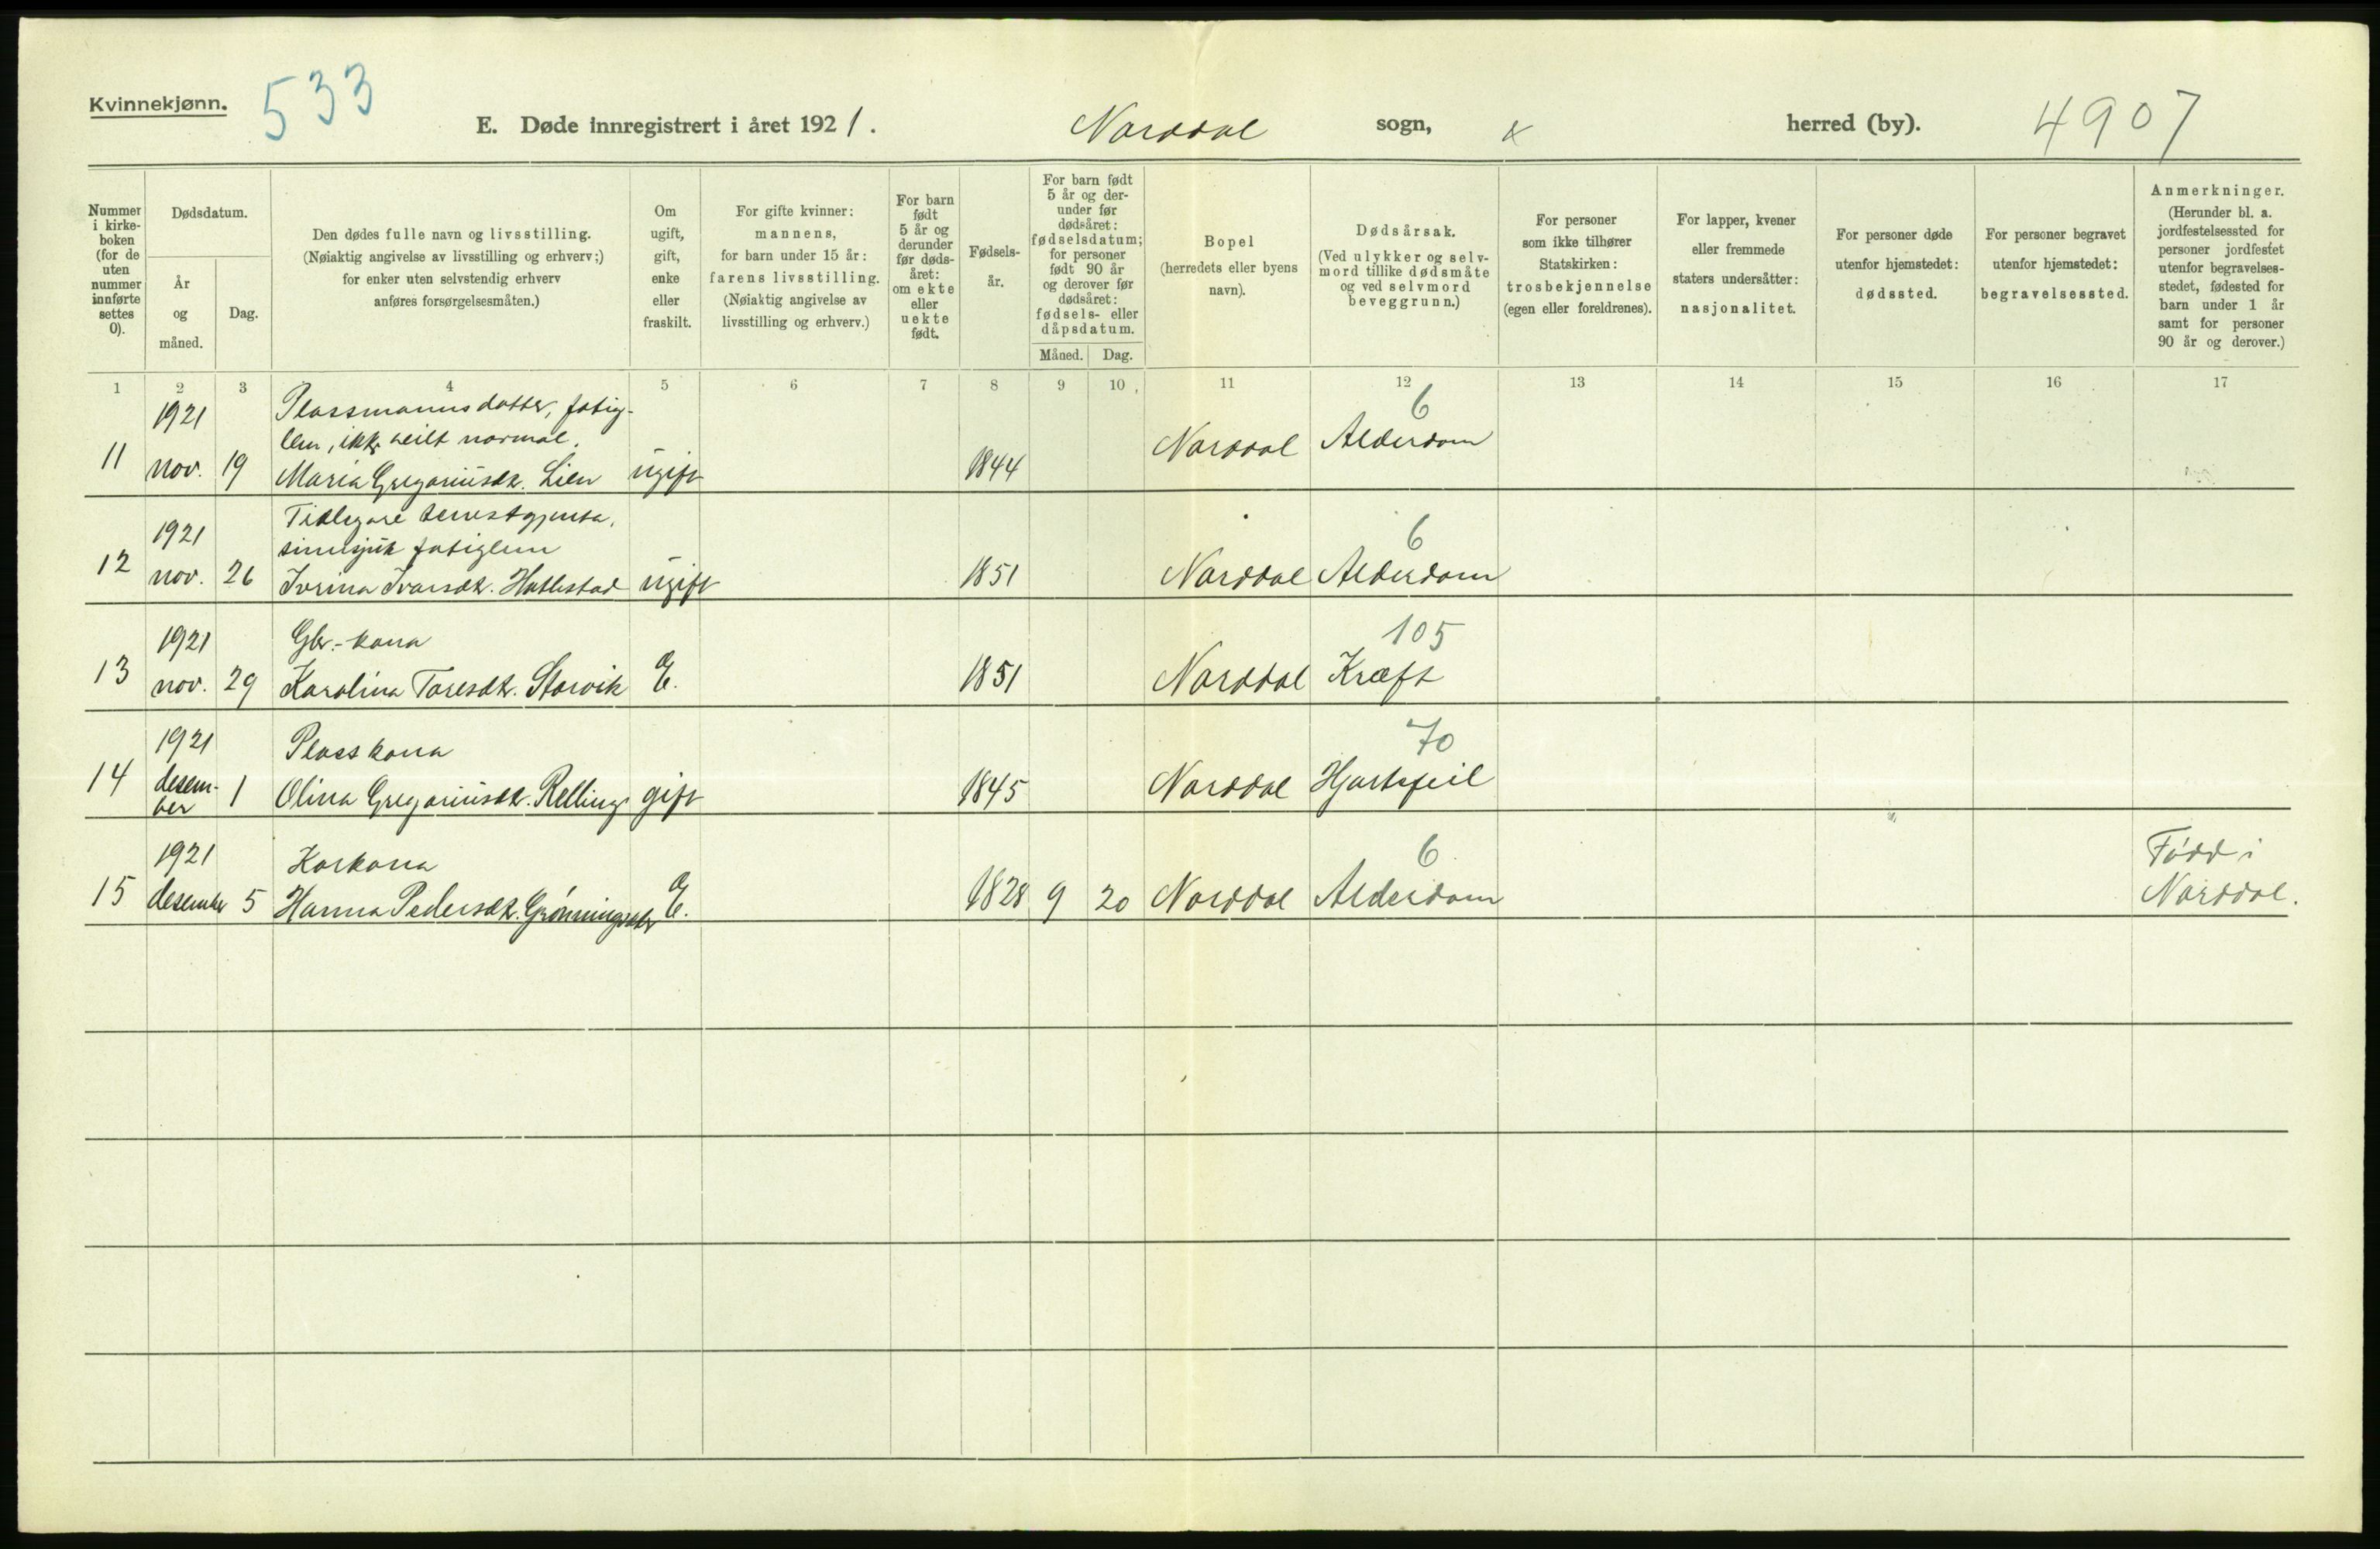 Kvinnekjønn.
533
E. Døde innregistrert i året 1921.
Norddal sogn, x herred (by).
4907
Nummer i kirke- boken (for de uten nummer innførte settes 0).
Dødsdatum.
År og måned.
Dag.
Den dødes fulle navn og livsstilling.
(Nøiaktig angivelse av livsstilling og erhverv;)
for enker uten selvstendig erhverv
anføres forsørgelsesmåten.)
Om ugift, gift, enke eller fraskilt.
For gifte kvinner:
mannens,
for barn under 15 år:
farens livsstilling.
(Nøiaktig angivelse av
livsstilling og erhverv.)
For barn født 5 år og derunder før døds- året: om ekte eller uekte født.
Fødsels- år.
For barn født 5 år og der- under før dødsåret: fødselsdatum; for personer født 90 år og derover før dødsåret: fødsels- eller dåpsdatum.
Måned. Dag.
Bopel
(herredets eller byens
navn).
Dødsårsak.
(Ved ulykker og selv-
mord tillike dødsmåte
og ved selvmord
beveggrunn.)
For personer
som ikke tilhører
Statskirken:
trosbekjennelse
(egen eller foreldrenes).
For lapper, kvener
eller fremmede
staters undersåtter:
nasjonalitet.
For personer døde
utenfor hjemstedet:
dødssted.
For personer begravet
utenfor hjemstedet:
begravelsessted.
Anmerkninger.
(Herunder bl. a.
jordfestelsessted for
personer jordfestet
utenfor begravelses-
stedet, fødested for
barn under 1 år
samt for personer
90 år og derover.)
1 2 3 4 5 6 7 8 9 10 11 12 13 14 15 16 17
1921 Plassmannsdotter, fatig- 6
lem, ikkje heilt normal.
11 nov. 19 Maria Gregoriusdtr. Lien ugift 1844 Norddal Alderdom
1921 Tidlegare tenestgjenta, 6
sinnsjuk fatiglem
12 nov. 26 Ivrina Ivarsdtr. Hatlestad ugift 1851 Norddal Alderdom
1921 Gbr.-kona 105
13 nov. 29 Karolina Toresdtr. Storvik E. 1851 Norddal Kræft
1921 Plasskona 70
14 desem- ber 1 Olina Gregoriusdtr. Relling gift 1845 Norddal Hjartefeil
1921 Kårkona 6 Född i
15 desember 5 Hanna Pedersdtr. Grønningsæter E. 1828 9 20 Norddal Alderdom Norddal.